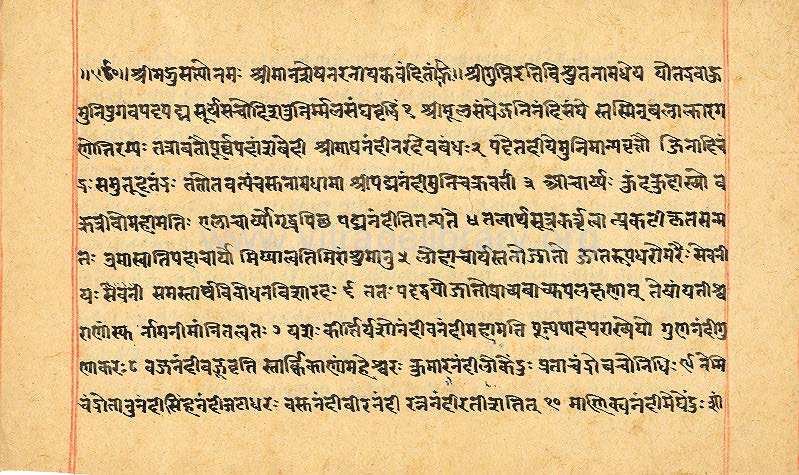 श्रीमानशेषनरनायकवंदितांह्रिः ॥ श्रीगुप्तिगुप्त इति विश्रुतनामधेयः यो भद्रबाहु
मुनिपुंगवपट्टपद्म सूर्यः स वो दिशतु निर्म्मलसंघवृद्धिं १ श्रीमूलसंघेऽजनि नंदिसंघस्तस्मिन् बलात्कारग
णोतिरम्यः तत्राभवत् पूर्वपदांशवेदी श्रीमाघनंदी नरदेववंद्यः २ पट्टे तदीये मुनिमान्यवृत्तौ जिनादिचं
द्रः समभूदतंद्रः ततोभवत्पंचसुनामधामा श्रीपद्मनंदी मुनिचक्रवर्ती ३ आचार्यः कुंदकुंदाख्यो व
क्रग्रीवो महामतिः एलाचार्यो गृद्धपिच्छः पद्मनंदीति तन्यते ४ तत्वार्थसूत्रकर्तृत्वाप्रकटीकृतसन्म
तिः उमास्वातिपदाचार्यो मिथ्यात्वतिमिरांशुमान् ५ लोहाचार्यस्ततो जातो जातरूपधरोमरैः सेवनी
यः समस्तार्थविबोधनविशारदः ६ ततः पट्टद्वयी जाता तेषां यतीश्व
राणां स्यु र्नामानीमानि तत्वतः ७ यशःकीर्तिर्यशोनंदी देवनंदी महामति पूज्यपादापराख्येयो गुणनंदी गु
णाकरः ८ वज्रनंदी वज्रवृत्ति स्तार्किकाणां महेश्वरः कुमारनंदी लोकेंदुः प्रभाचंद्रो वचोनिधिः ९ नेमि
चंद्रो भानुनंदी सिंहनंदी जटाधरः वसुनंदी वीरनंदी रत्ननंदी रतीशभित् १० माणिक्यनंदी मेघेंदुः शां